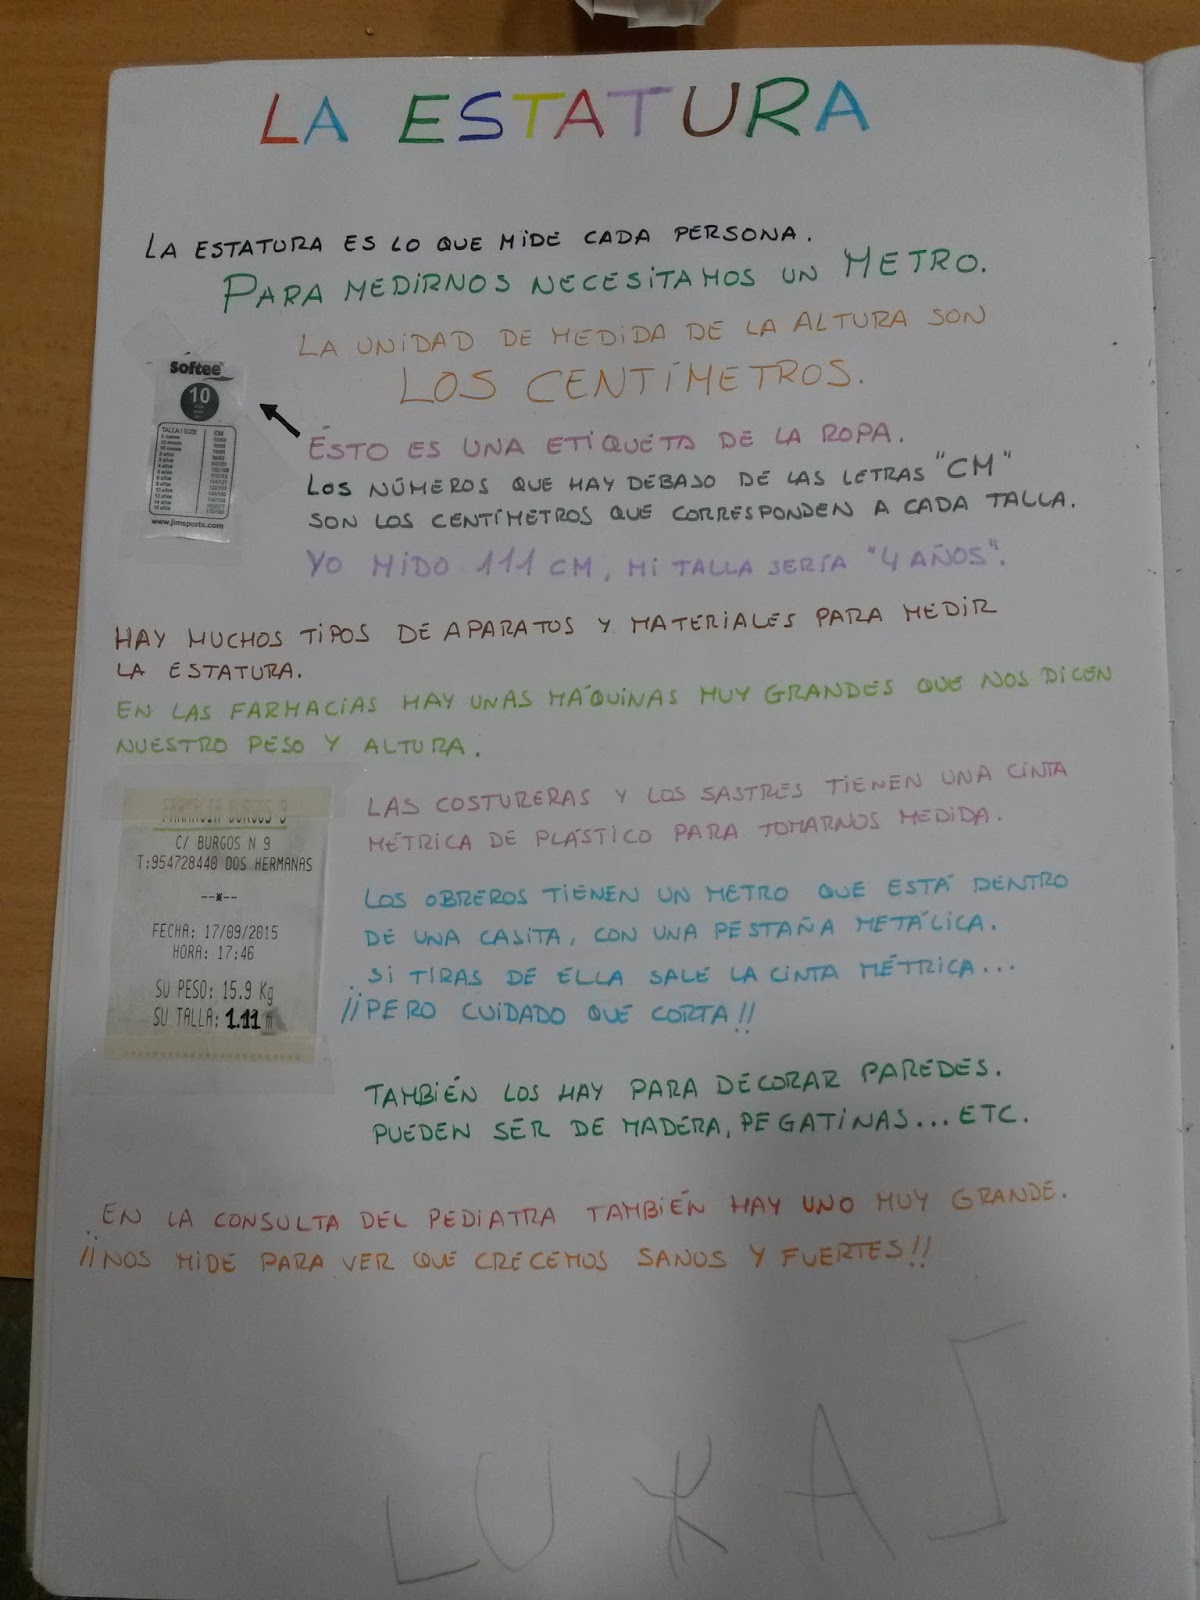 LA ESTATURA
LA ESTATURA ES LO QUE MIDE CADA PERSONA.
PARA MEDIRNOS NECESITAMOS UN METRO.
LA UNIDAD DE MEDIDA DE LA ALTURA SON
LOS CENTÍMETROS.
Softee
10
TALLA / SIZE CM
www.jimsports.com
ÉSTO ES UNA ETIQUETA DE LA ROPA.
LOS NÚMEROS QUE HAY DEBAJO DE LAS LETRAS "CM"
SON LOS CENTÍMETROS QUE CORRESPONDEN A CADA TALLA.
YO MIDO 111 CM, MI TALLA SERÍA "4 AÑOS".
HAY MUCHOS TIPOS DE APARATOS Y MATERIALES PARA MEDIR
LA ESTATURA.
EN LAS FARMACIAS HAY UNAS MÁQUINAS MUY GRANDES QUE NOS DICEN
NUESTRO PESO Y ALTURA.
FARMACIA BURGOS 9
C/ BURGOS N 9
T:954728440 DOS HERMANAS
--*--
FECHA: 17/09/2015
HORA: 17:46
SU PESO: 15.9 Kg
SU TALLA: 1.11 m
LAS COSTURERAS Y LOS SASTRES TIENEN UNA CINTA
MÉTRICA DE PLÁSTICO PARA TOMARNOS MEDIDA.
LOS OBREROS TIENEN UN METRO QUE ESTÁ DENTRO
DE UNA CASITA, CON UNA PESTAÑA METÁLICA.
SI TIRAS DE ELLA SALE LA CINTA MÉTRICA...
¡¡PERO CUIDADO QUE CORTA!!
TAMBIÉN LOS HAY PARA DECORAR PAREDES.
PUEDEN SER DE MADERA, PEGATINAS... ETC.
EN LA CONSULTA DEL PEDIATRA TAMBIÉN HAY UNO MUY GRANDE.
¡¡NOS MIDE PARA VER QUE CRECEMOS SANOS Y FUERTES!!
LUKAS